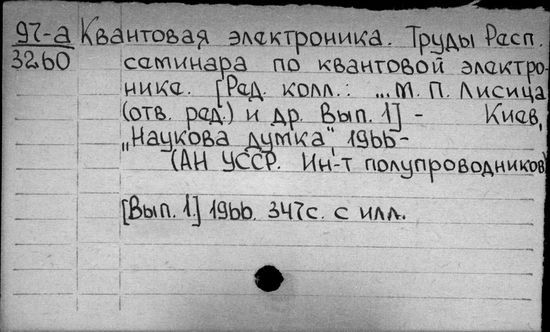 97-а Квантовая электроника. Труды Респ.
3260 семинара по квантовой электро-
ника. [Ред. колл.: ...М. П. Лисица
(отв. ред.) и др. Вып. 1] - Киев,
„Наукова думка", 1966-
(АН УССР. Ин-т полупроводников)
[Вып. 1.] 1966. 347с. с илл.